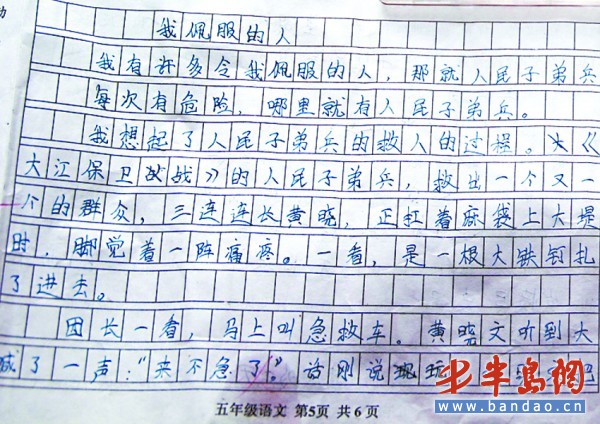 我佩服的人
我有许多令我佩服的人，那就人民子弟兵
每次有危险，哪里就有人民子弟兵。
我想起了人民子弟兵的救人的过程。《
大江保卫战》的人民子弟兵，救出一个又一
个的群众，三连连长黄晓，正扛着麻袋上大堤
时，脚觉着一阵痛疼。一看，是一根大铁钉扎
了进去。
团长一看，马上叫急救车。黄晓文听到大
喊了一声：“来不急了”。话刚说
半岛网
www.bandao.cn
五年级语文 第5页 共6页